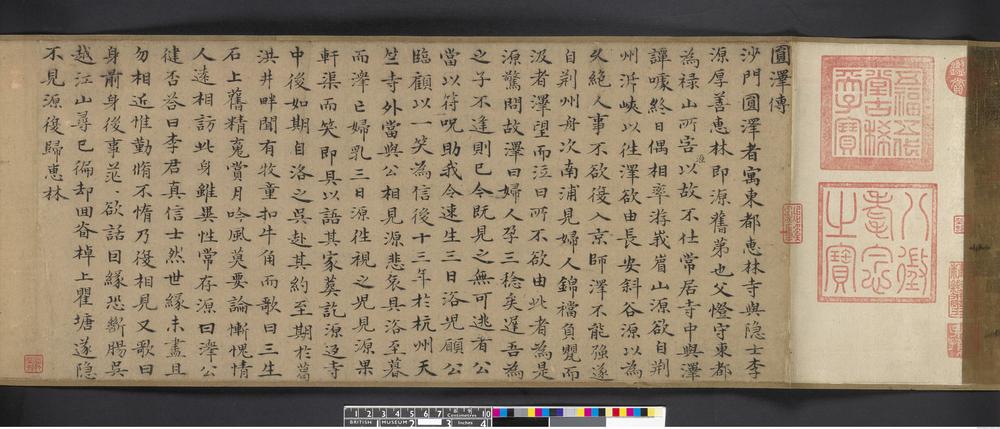 圓澤傳
沙門圓澤者寓東都惠林寺與隱士李
源厚善惠林即源舊第也父燈守東都
為禄山所害源以故不仕常居寺中與澤
譚噱終日偶相率游峩眉山源欲自荆
州泝峽以徃澤欲由長安斜谷源以為
久絶人事不欲復入京師澤不能强遂
自荆州舟次南浦見婦人錦襠負甖而
汲者澤望而泣曰所不欲由此者為是
源驚問故澤曰婦人孕三稔矣遲吾為
之子不逢則已今既見之無可逃者公
當以符呪助我令速生三日浴児願公
臨顧以一笑為信後十三年於杭州天
竺寺外當與公相見源悲哀具浴至暮
而澤亡婦乳三日源徃視之児見源果
軒渠而笑即具以語其家葬訖源返寺
中後如期自洛之吳赴其約至期於葛
洪井畔聞有牧童扣牛角而歌曰三生
石上舊精䰟賞月吟風莫要論慚愧情
人遠相訪此身雖異性常存源曰澤公
健否荅曰李君真信士然世縁未盡且
勿相近惟勤脩不惰乃復相見又歌曰
身前身後事茫、欲話因縁恐斷腸吳
越江山尋已徧却回沓棹上瞿塘遂隱
不見源復歸惠林
八徵耄念之寶
五福五代堂古稀天子寶
1 2 3 4 5 6 7 8 9 10
Centimetres
BRITISH MUSEUM
2 3 Inches 4